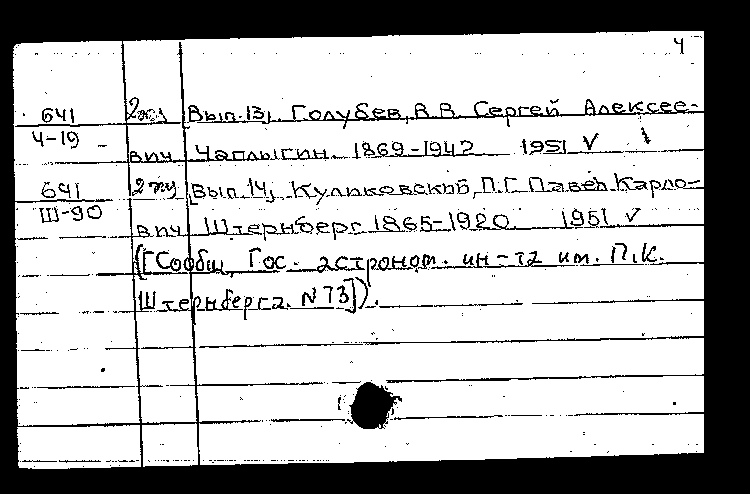 4
641 2 экз [Вып. 13]. Голубев, В.В. Сергей Алексее-
Ч-19 вич Чаплыгин. 1869-1942 1951 V
641 2 экз [Вып. 14]. Куликовский, П.Г. Павел Карло-
Ш-90 вич Штернберг 1865-1920. 1951. V
([Сообщ. Гос. астроном. ин-та им. П.К.
Штернберга. N 73]).